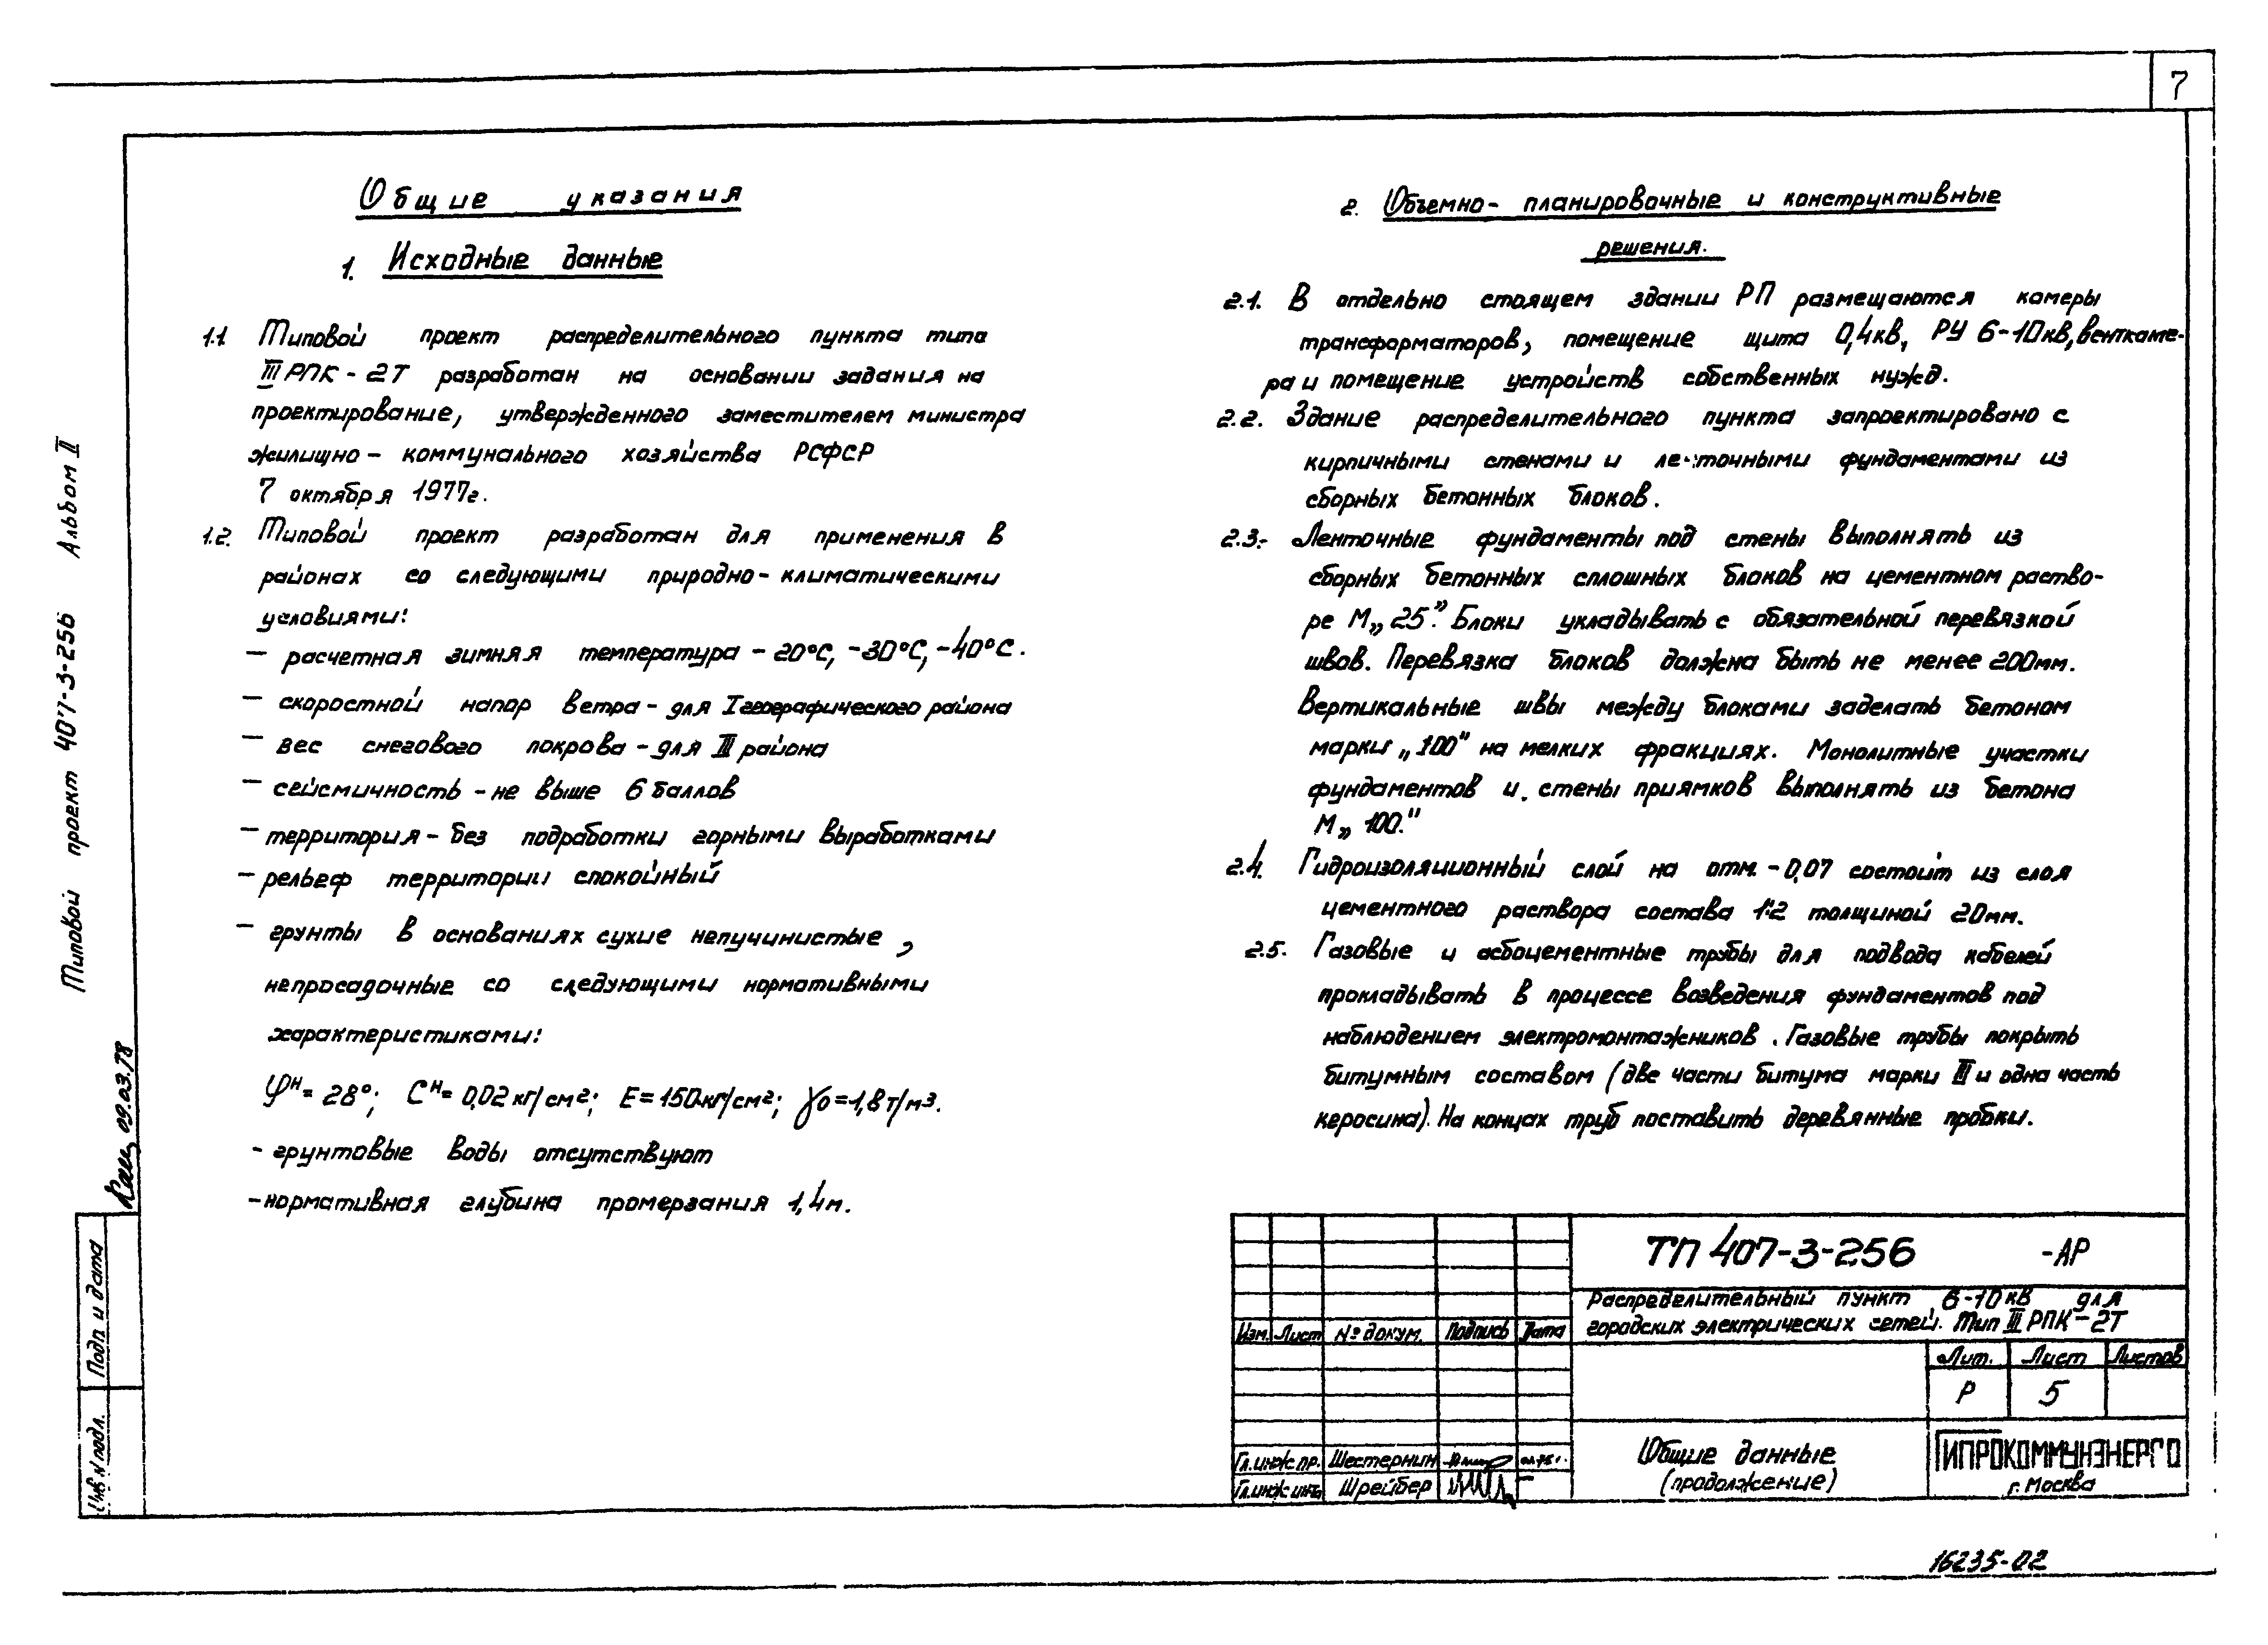 7
Общие указания
1. Исходные данные
1.1 Типовой проект распределительного пункта типа
III РПК-2Т разработан на основании задания на
проектирование, утвержденного заместителем министра
жилищно-коммунального хозяйства РСФСР
7 октября 1977г.
1.2. Типовой проект разработан для применения в
районах со следующими природно-климатическими
условиями:
— расчетная зимняя температура -20°С, -30°С, -40°С.
— скоростной напор ветра - для I географического района
— вес снегового покрова - для III района
— сейсмичность - не выше 6 баллов
— территория - без подработки горными выработками
— рельеф территории спокойный
— грунты в основаниях сухие непучинистые,
непросадочные со следующими нормативными
характеристиками:
φн = 28°; Сн = 0,02 кг/см²; Е = 150кг/см²; γо = 1,8 т/м3.
- грунтовые воды отсутствуют
- нормативная глубина промерзания 1,4м.
2. Объемно-планировочные и конструктивные
решения.
2.1. В отдельно стоящем здании РП размещаются камеры
трансформаторов, помещение щита 0,4кв, РУ 6-10кв, венткаме-
ра и помещение устройств собственных нужд.
2.2. Здание распределительного пункта запроектировано с
кирпичными стенами и ленточными фундаментами из
сборных бетонных блоков.
2.3.- Ленточные фундаменты под стены выполнять из
сборных бетонных сплошных блоков на цементном раство-
ре М„25”. Блоки укладывать с обязательной перевязкой
швов. Перевязка блоков должна быть не менее 200мм.
Вертикальные швы между блоками заделать бетоном
марки „100" на мелких фракциях. Монолитные участки
фундаментов и стены приямков выполнять из бетона
М„100."
2.4. Гидроизоляционный слой на отм. -0,07 состоит из слоя
цементного раствора состава 1:2 толщиной 20мм.
2.5. Газовые и асбоцементные трубы для подвода кабелей
прокладывать в процессе возведения фундаментов под
наблюдением электромонтажников. Газовые трубы покрыть
битумным составом (две части битума марки III и одна часть
керосина). На концах труб поставить деревянные пробки.
Типовой проект 407-3-256 Альбом II
09.03.78
Подп и дата
Инв N подл.
ТП 407-3-256 -АР
Распределительный пункт 6-10кв для
городских электрических сетей. Тип III РПК-2Т
Изм. Лист № докум. Подпись Дата
Лит. Лист Листов
Р 5
Гл.инж.пр. Шестернин
Гл.инж.инта Шрейбер
Общие данные
(продолжение)
ГИПРОКОММУНЭНЕРГО
г. Москва
16235-02